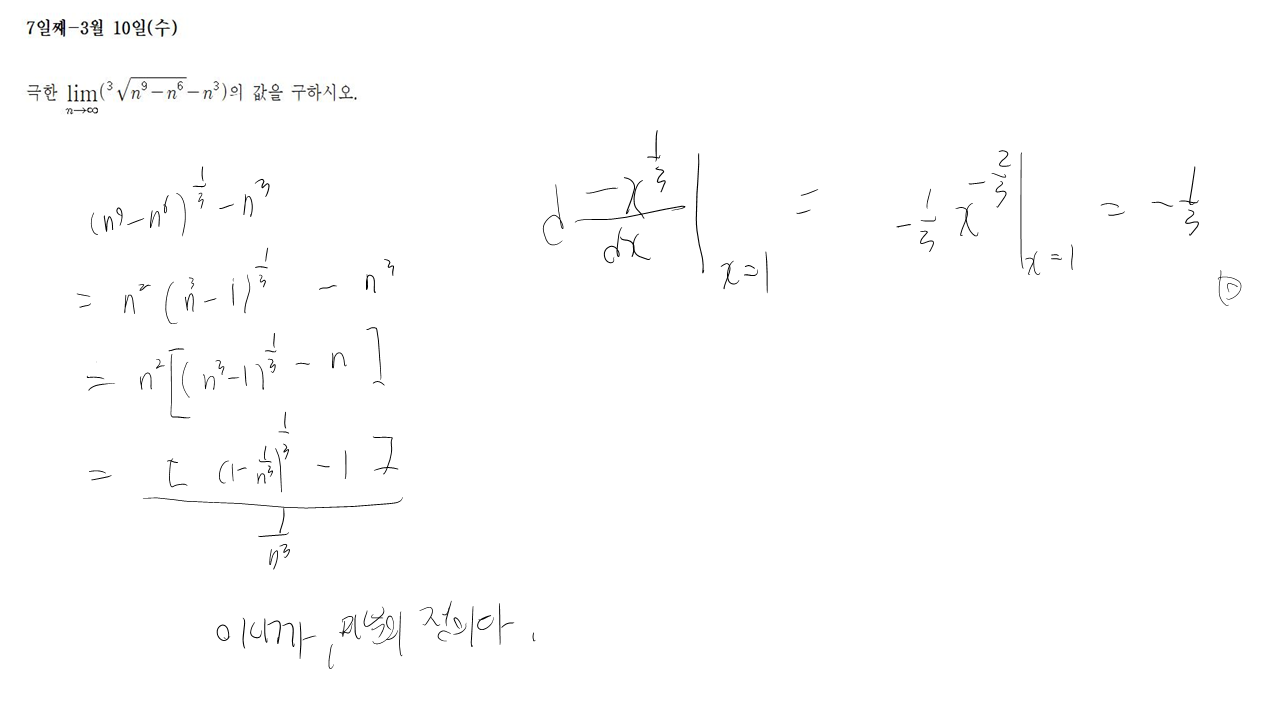 7일째-3월 10일(수)
극한 lim n→∞ (³√(n⁹-n⁶)-n³)의 값을 구하시오.
(n⁹-n⁶)^(1/3) - n³
= n² (n³-1)^(1/3) - n³
= n² [(n³-1)^(1/3) - n]
= [(1-1/n³)^(1/3) - 1] / (1/n³)
이니까, 미분의 정의야.
d -x^(1/3) / dx | x=1 = -1/3 x^(-2/3) | x=1 = -1/3